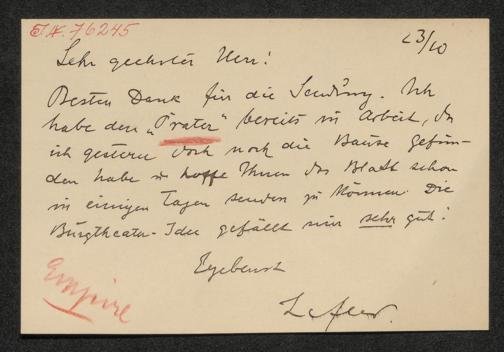 J.N. 76245
23/10
Sehr geehrter Herr!
Besten Dank für die Sendung. Ich
habe den „Prater" bereits in Arbeit, da
ich gestern doch noch die Bause gefun-
den habe u hoffe Ihnen das Blatt schon
in einigen Tagen senden zu können. Die
Burgtheater-Idee gefällt mir sehr gut!
Ergebenst
Lefler.
Empire